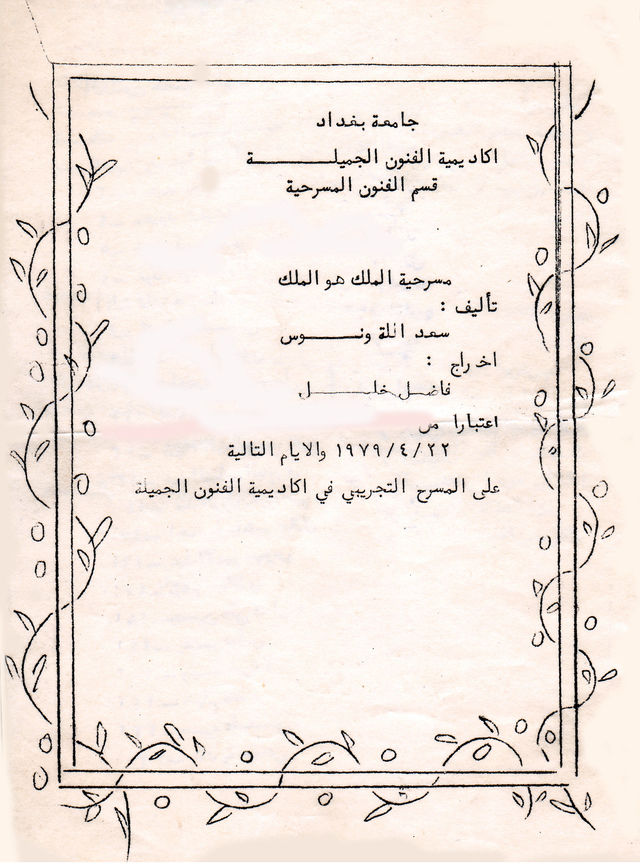 جامعة بغداد
اكاديمية الفنون الجميلـــــــــة
قسم الفنون المسرحية
مسرحية الملك هو الملك
تأليف :
سعد اللة ونـــــــوس
اخراج :
فاضـل خليـــــــل
اعتبارا من
٢٢/٤/١٩٧٩ والايام التالية
على المسرح التجريبي في اكاديمية الفنون الجميلة